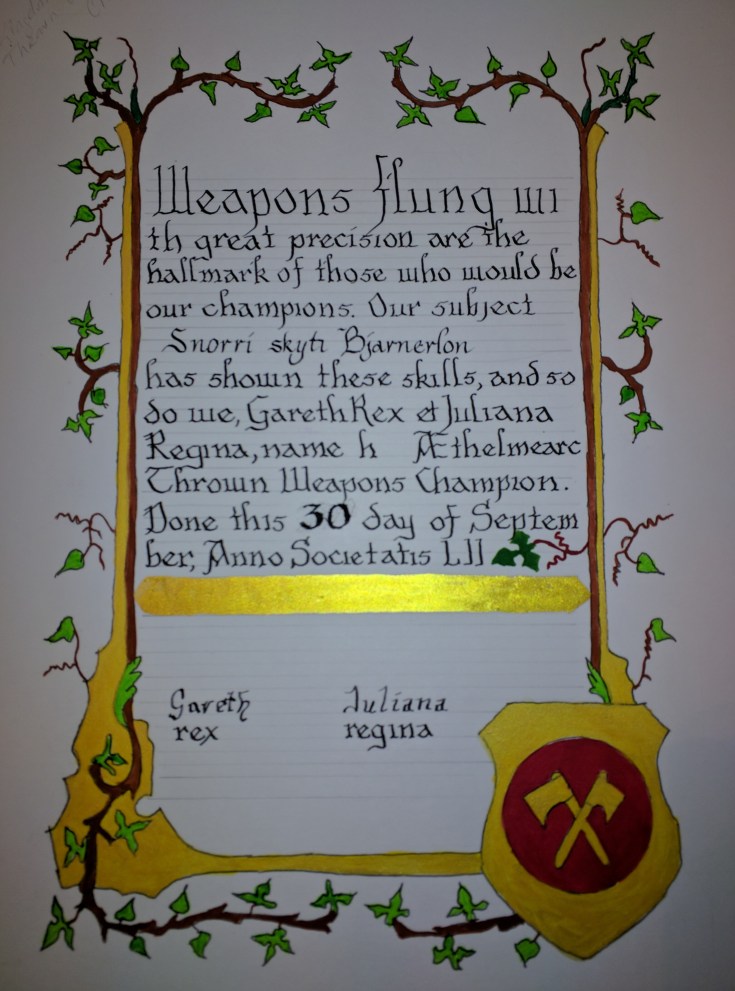 Weapons flung wi
th great precision are the
hallmark of those who would be
our champions. Our subject
Snorri skyti Bjarnerson
has shown these skills, and so
do we, Gareth Rex et Juliana
Regina, name h Æthelmearc
Thrown Weapons Champion.
Done this 30 day of Septem
ber, Anno Societatis LII
Gareth Juliana
rex regina